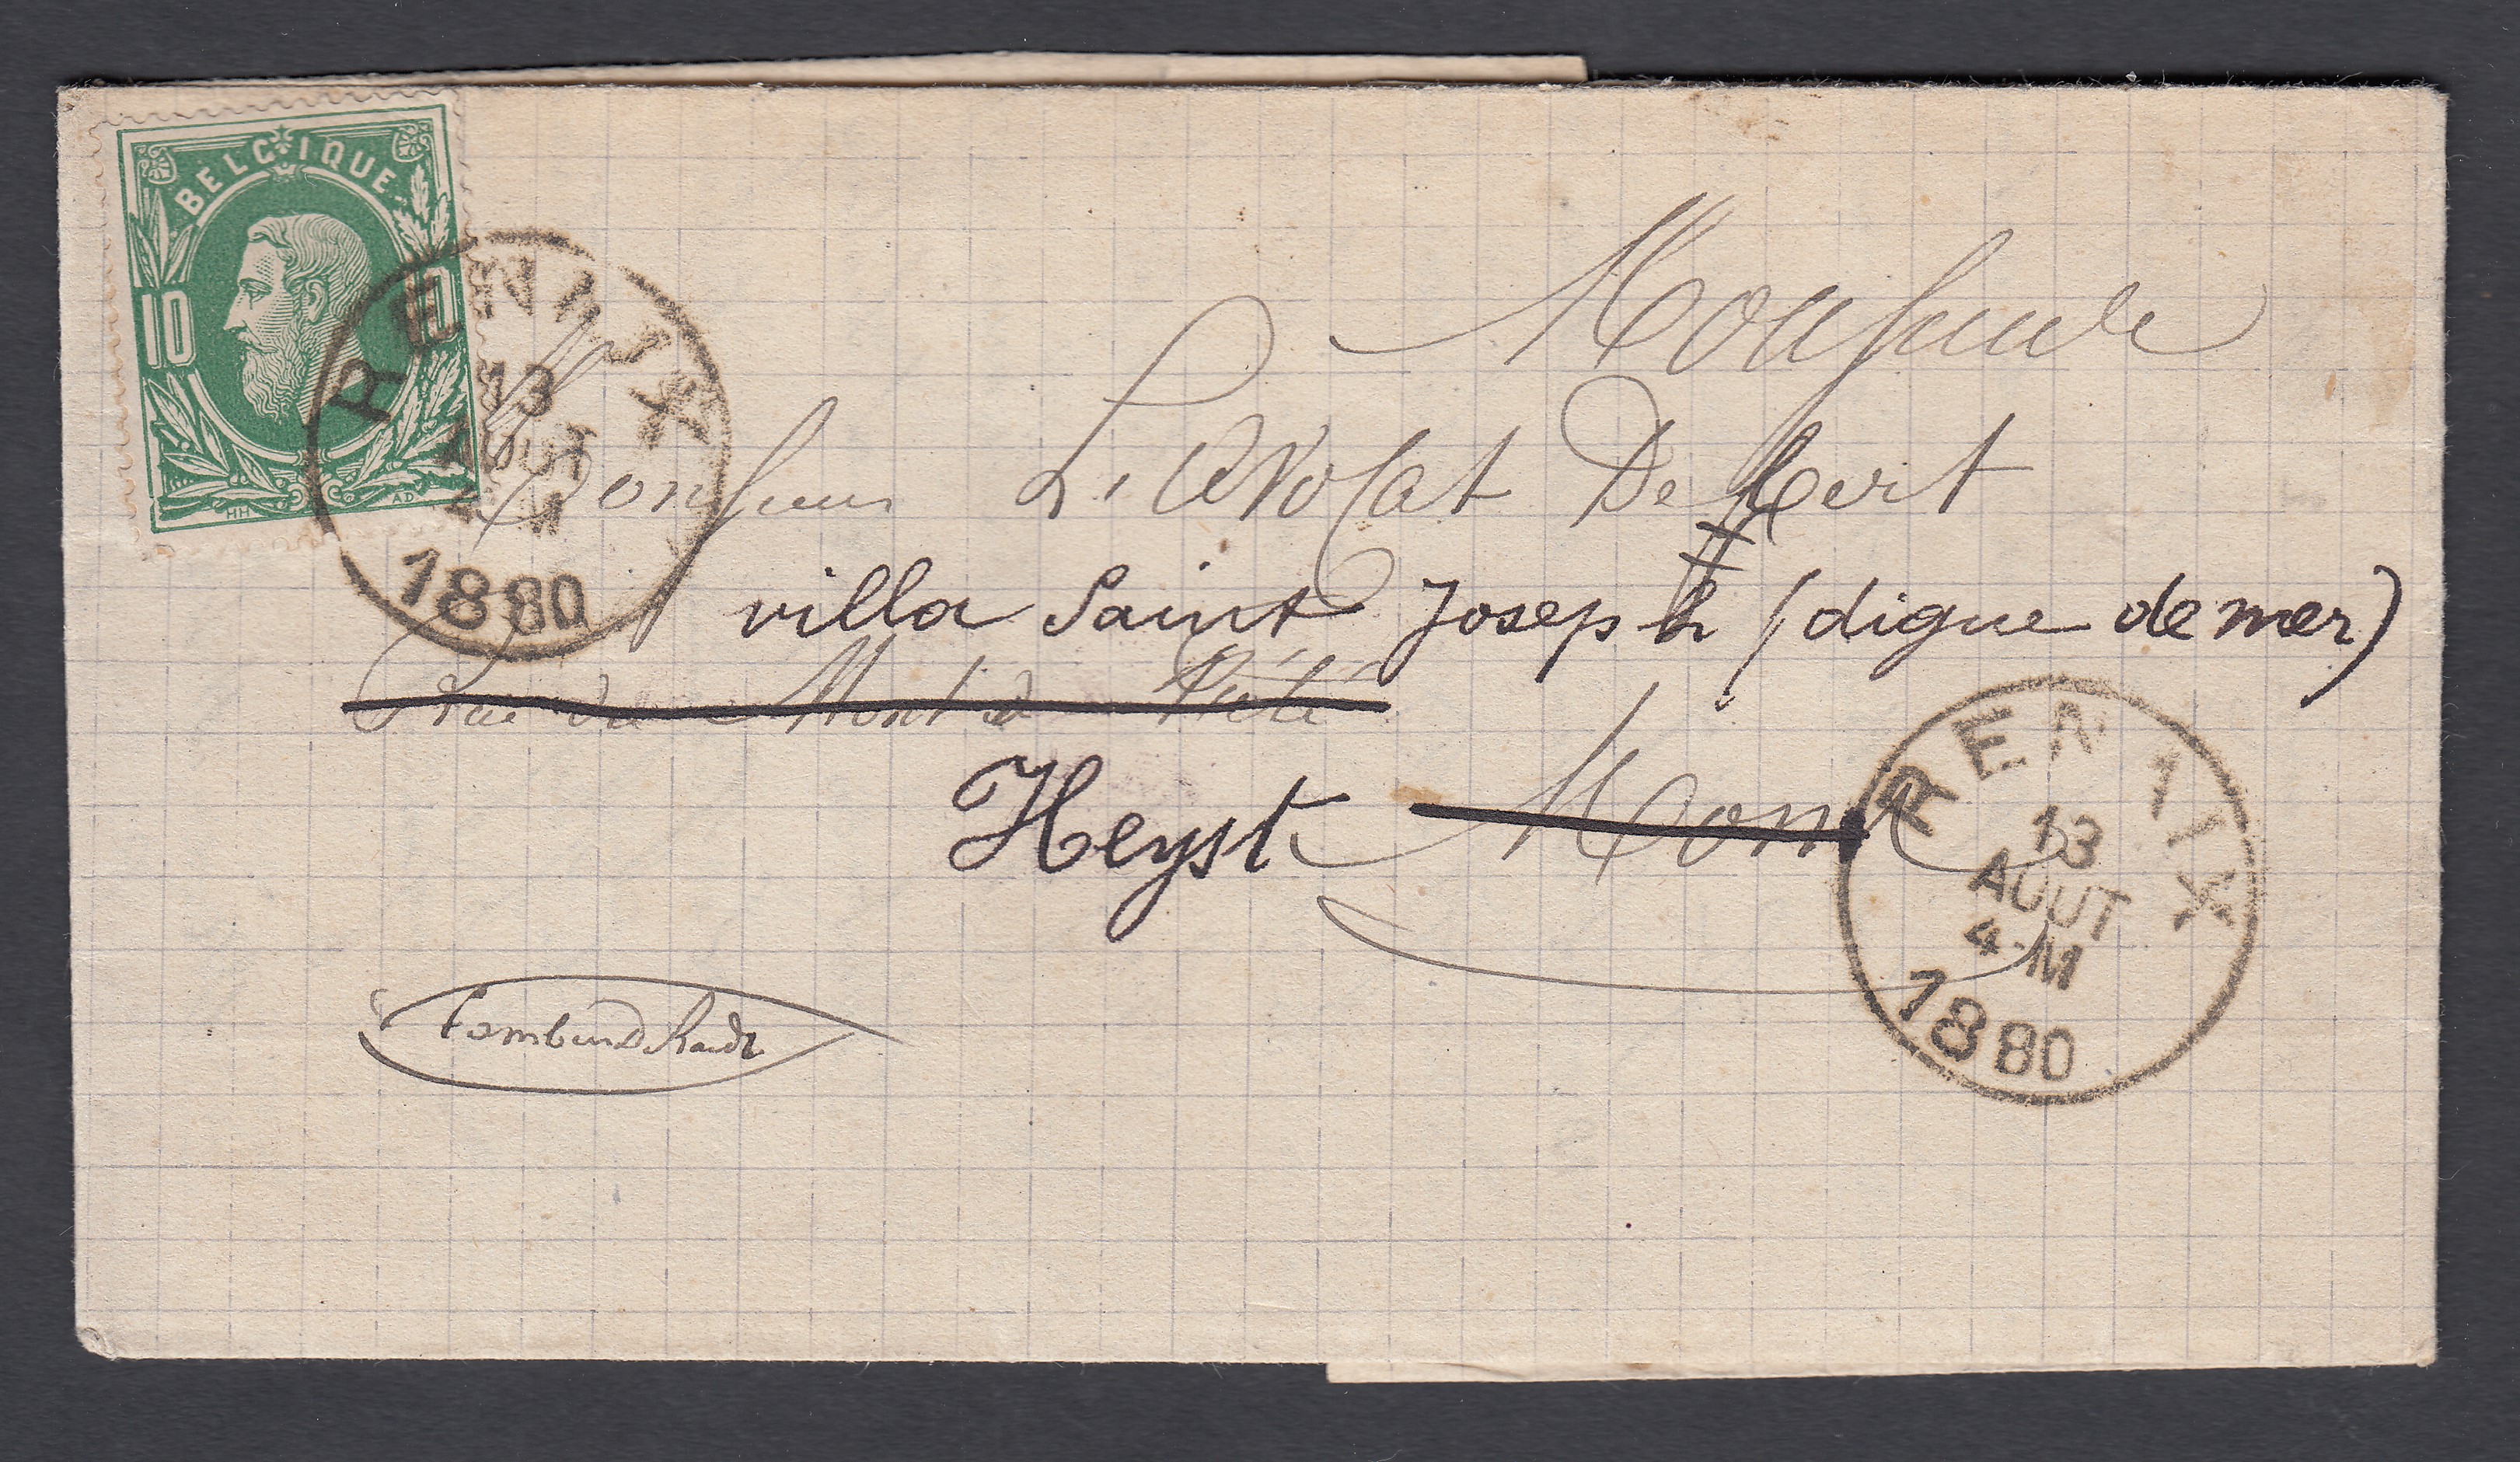 BELGIQUE
10 10
HH AD
RENAIX
13
AOUT
4-M
1880
Monsieur
Monsieur L'Avocat De Bert
villa Saint Joseph (digue de mer)
Rue du Mont de Piété
Heyst Mons
RENAIX
13
AOUT
4-M
1880